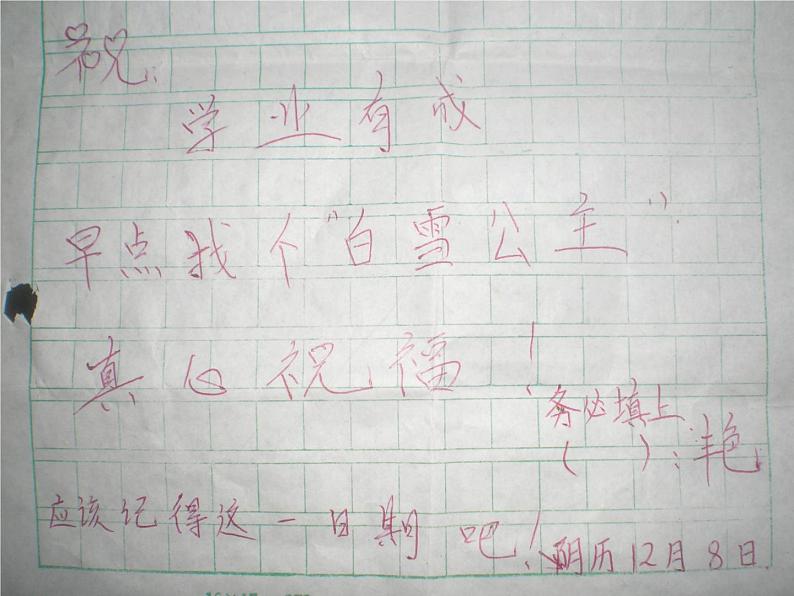 祝:
学业有成
早点找个"白雪公主".
真心祝福!
务必填上
( ):艳
应该记得这一日期吧!阴历12月8日.